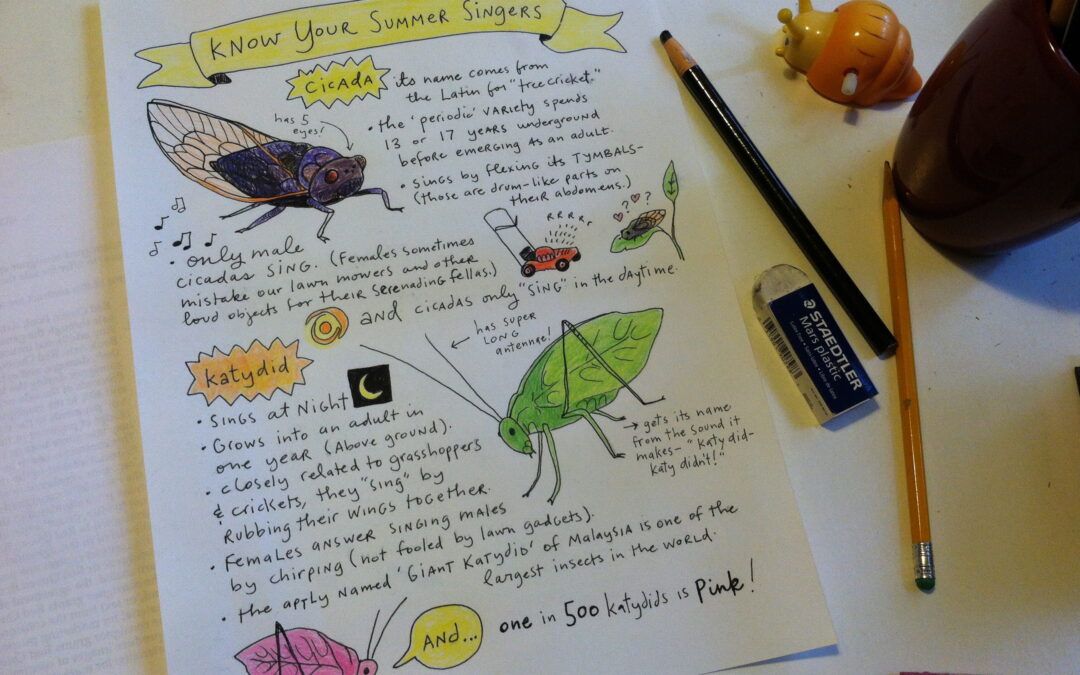 Know Your Summer Singers
Cicada
its name comes from
the Latin for "tree cricket."
has 5
eyes!
• the 'periodic' variety spends
13 or 17 years underground
before emerging as an adult.
• sings by flexing its TYMBALS-
(those are drum-like parts on
their abdomens.)
RRRRr
? ?
• only male
cicadas sing. (Females sometimes
mistake our lawn mowers and other
loud objects for their serenading fellas.)
and cicadas only "sing" in the daytime.
has super
LONG
antennae!
katydid
• Sings at Night
• Grows into an adult in
one year (Above ground).
• closely related to grasshoppers
& crickets, they "sing" by
rubbing their wings together.
• Females answer singing males
by chirping (not fooled by lawn gadgets).
• the aptly named 'Giant Katydid' of Malaysia is one of the
largest insects in the world.
→ gets its name
from the sound it
makes- "katy did-
katy didn't!"
And...
one in 500 katydids is Pink!
STAEDTLER
Mars plastic